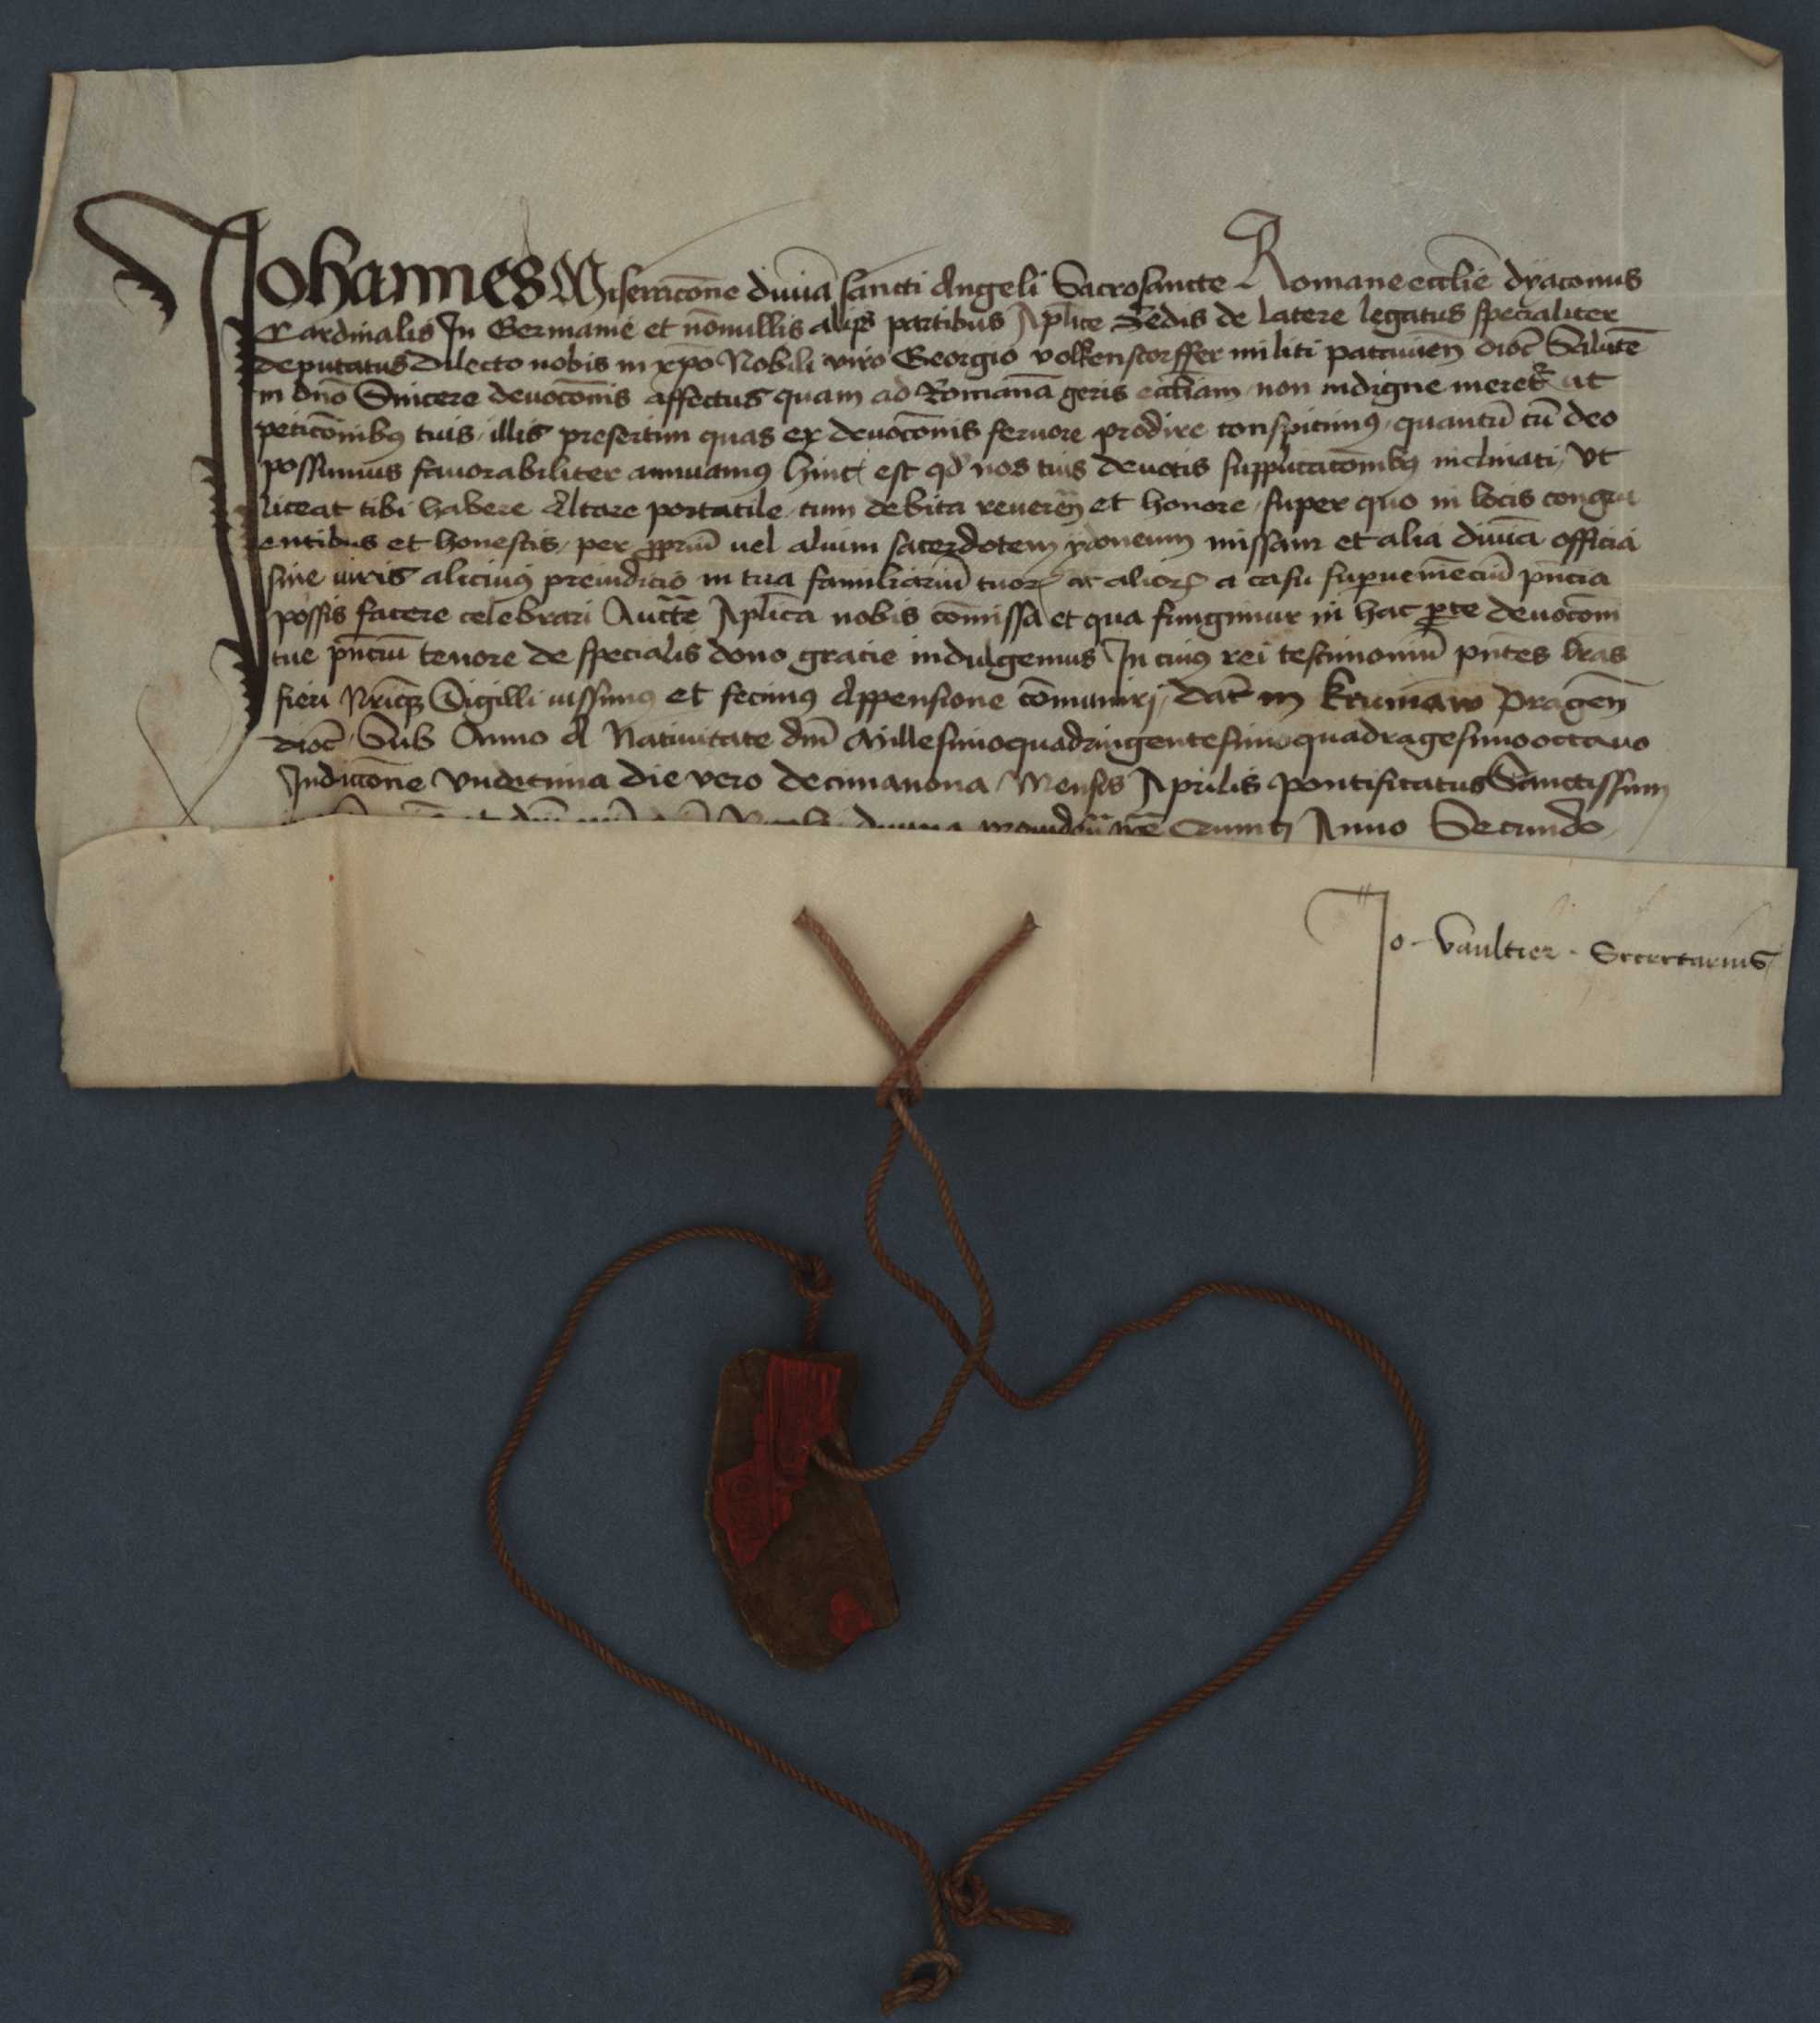 Johannes Misericōne diuīa sancti Angeli Sacrosancte Romane ecclīe dyaconus
Cardinalis In Germanie et nōnullis alijs partibus Aplīce Sedis de latere legatus specialiter
deputatus Dilecto nobis in xp̄o Nobili viro Georgio volkenstorffer militi patauieñ dioc̄ Salutē
in dn̄o Sincere deuocōnis affectus quam ad Romanā geris eccl̄iam non indigne meret᷑ ut
peticōnibꝯ tuis illis presertim quas ex deuocōnis feruore prodire conspicimꝯ quantū cū deo
possumus fauorabiliter annuamꝯ hinc est qd̓ nos tuis deuotis supplicacōnibꝯ inclinati, Vt
liceat tibi habere Altare portatile cum debita reuereñ et honore, super quo in locis congru
entibus et honestis, per ꝓpriū uel alium sacerdotem ydoneum missam et alia diuīa officia
sine iuris alicuiꝯ preiudicio in tua familiariū tuoꝝ ac alioꝝ a casu suꝑueniēciū pn̄cia
possis facere celebrari Auctt̄e Aplīca nobis cōmissa et qua fungimur in hac ꝑte deuocōni
tue pn̄ciū tenore de specialis dono gracie indulgemus In cuiꝯ rei testimoniū pn̄tes l̄ras
fieri Nr̄iqꝫ Sigilli iussimꝯ et fecimꝯ Appensione cōmuniri, Dat̄ in Krumaw Prageñ
dioc̄ Sub Anno A Natiuitate dn̄i Millesimoquadringentesimoquadragesimooctauo
Indicōne Vndecima die vero decimanona Mensis Aprilis Pontificatus Sanctissim
diuina prouidēn pp̄e Quinti Anno Secundo
Jo. Vaultier. Secretarius